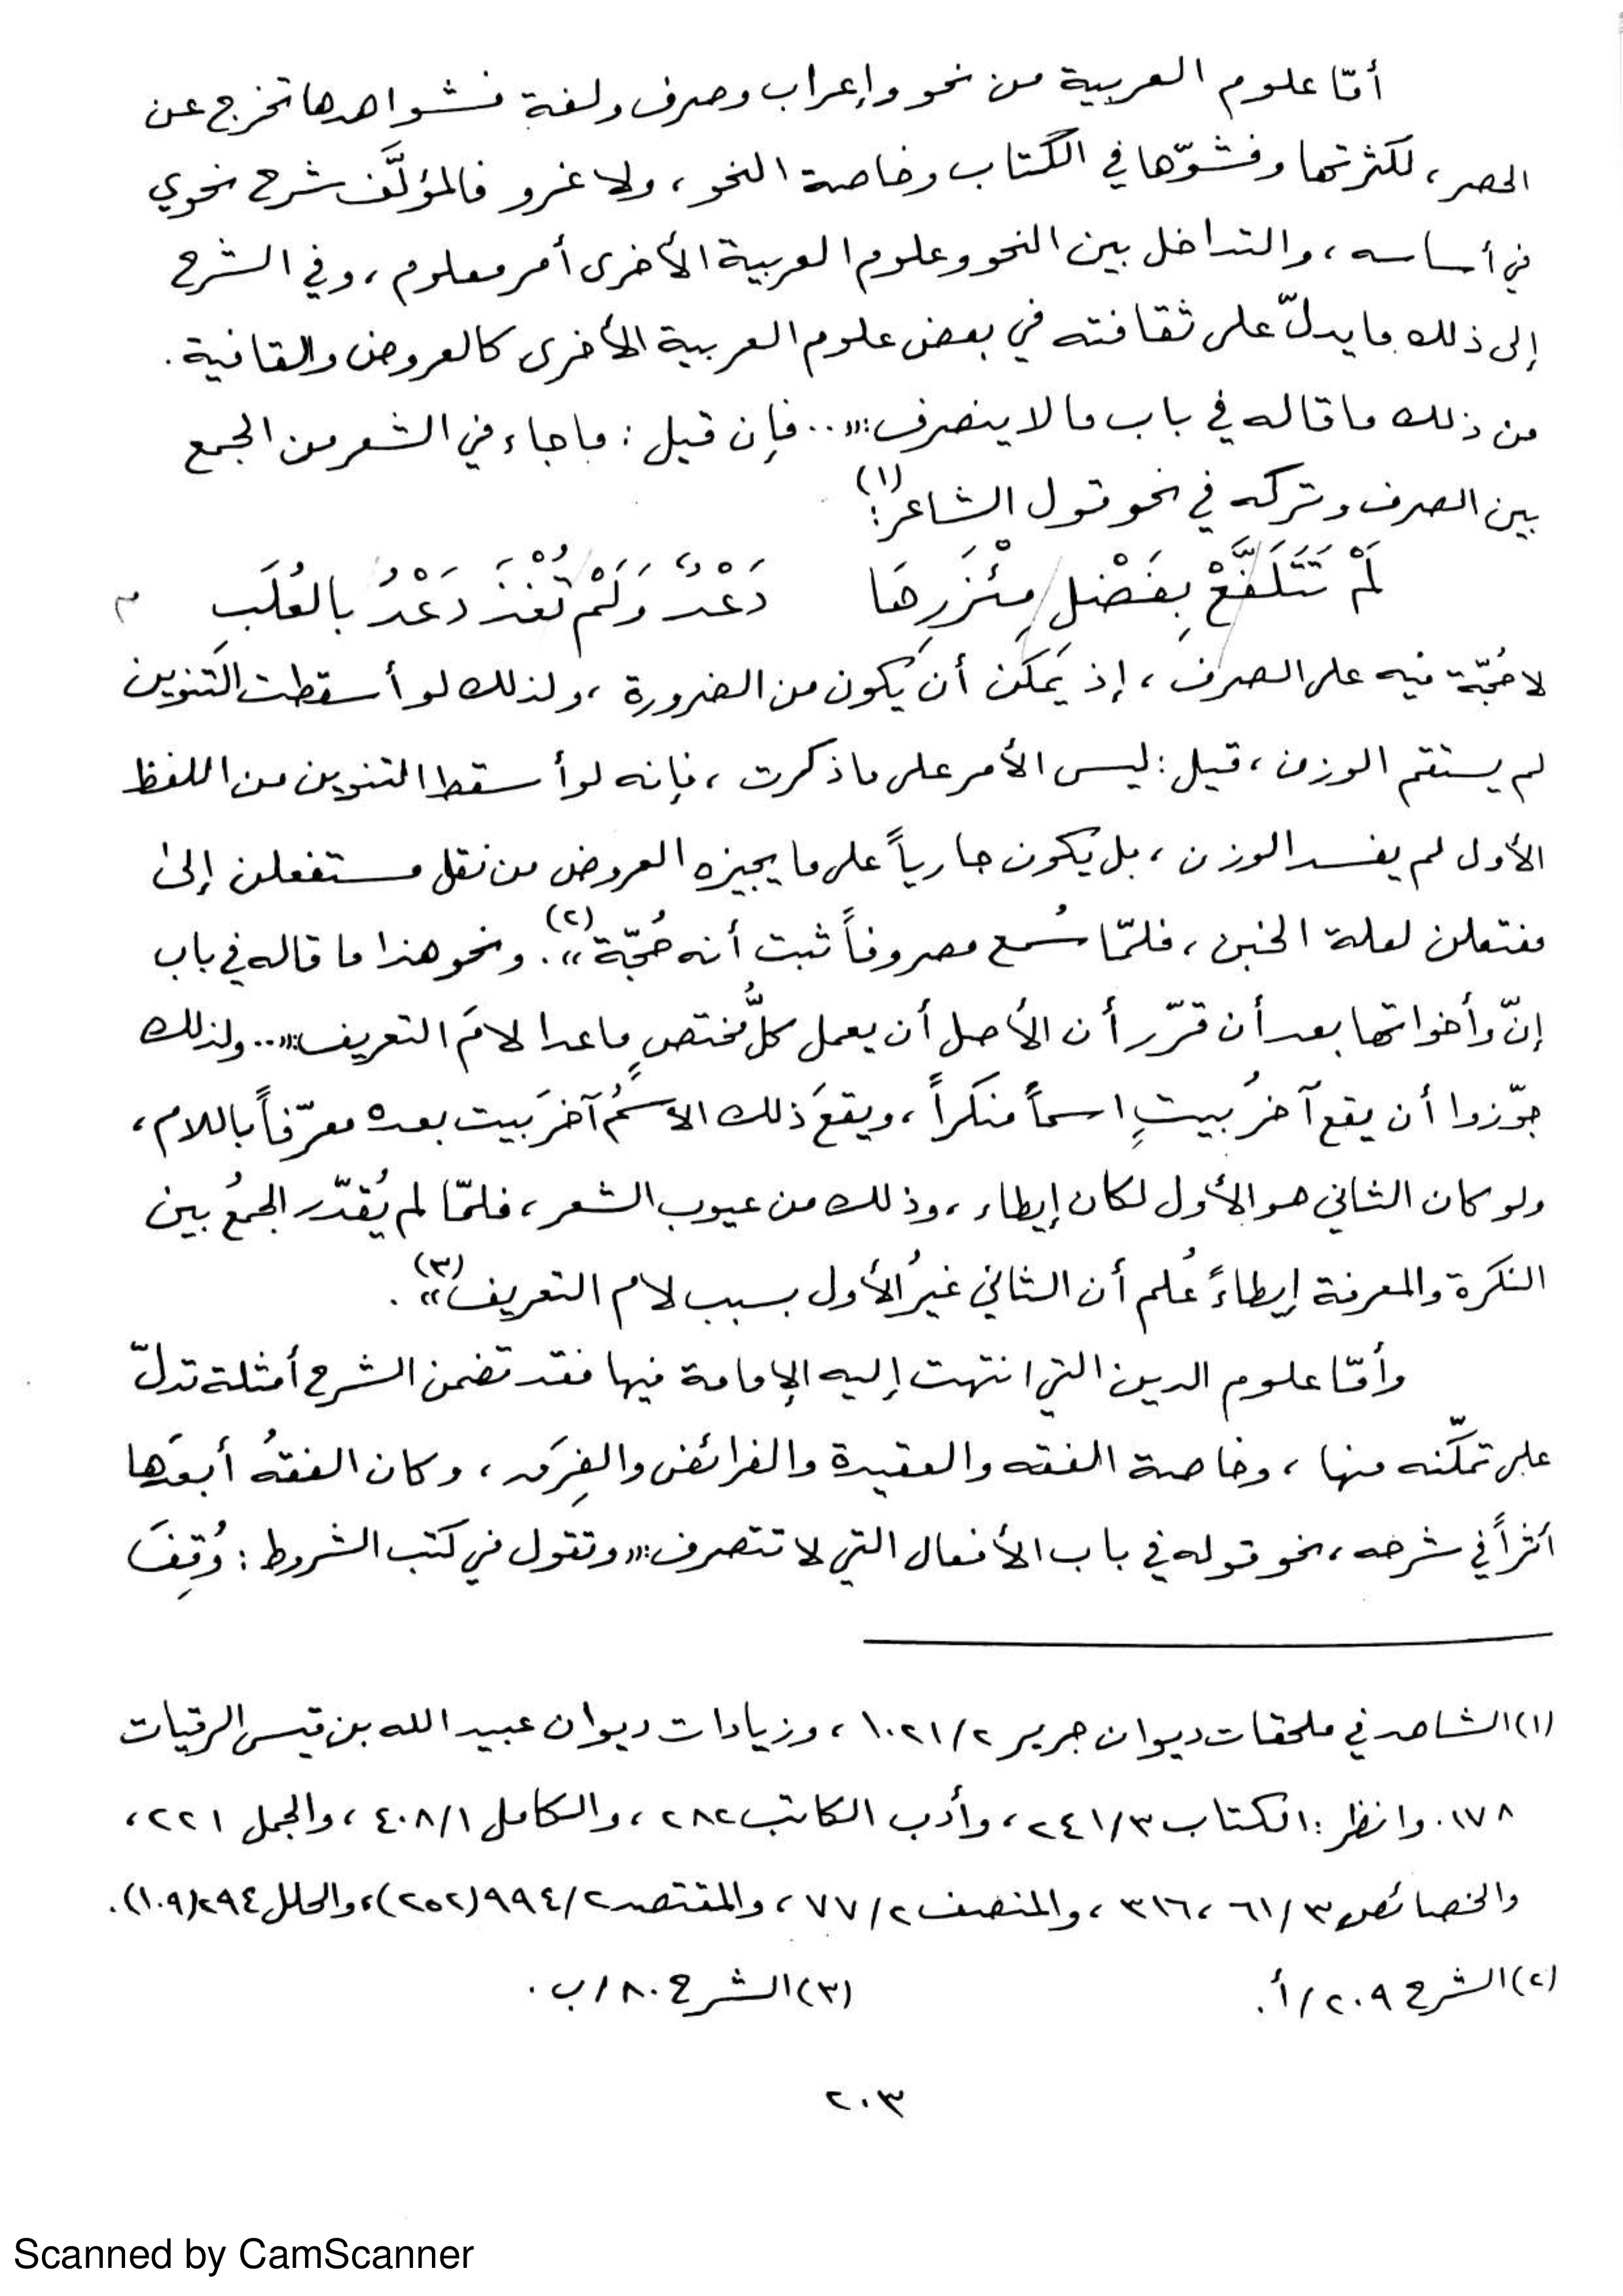 أمّا علوم العربية من نحو وإعراب وصرف ولغة فشواهدها تخرج عن
الحصر، لكثرتها وفشوّها في الكتاب وخاصة النحو، ولا غرو فالمؤلَّف شرح نحوي
في أساسه، والتداخل بين النحو وعلوم العربية الأخرى أمر معلوم، وفي الشرح
إلى ذلك ما يدلّ على ثقافته في بعض علوم العربية الأخرى كالعروض والقافية.
من ذلك ما قاله في باب ما لا ينصرف: «.. فإن قيل: ما جاء في الشعر من الجمع
بين الصرف وتركه في نحو قول الشاعر:(١)
لَمْ تَتَلَفَّعْ بِفَضْلِ مِئْزَرِهَا دَعْدٌ وَلَمْ تُغْذَ دَعْدُ بالعُلَبِ م
لا حُجّة فيه على الصرف، إذ يَمكن أن يكون من الضرورة، ولذلك لو أسقطت التنوين
لم يستقم الوزن، قيل: ليس الأمر على ما ذكرت، فإنه لو أسقط التنوين من اللفظ
الأول لم يفسد الوزن، بل يكون جارياً على ما يجيزه العروض من نقل مستفعلن إلى
مفتعلن لعلة الخبن، فلمّا سُمع مصروفاً ثبت أنه حُجّة»(٢). ونحو هذا ما قاله في باب
إنّ وأخواتها بعد أن قرّر أن الأصل أن يعمل كلُّ مختصٍ ماعدا لامَ التعريف: «.. ولذلك
جوّزوا أن يقع آخرُ بيتٍ اسماً منكراً، ويقعَ ذلك الاسمُ آخرَ بيت بعده معرّفاً باللام،
ولو كان الثاني هو الأول لكان إيطاء، وذلك من عيوب الشعر، فلمّا لم يُقدّر الجمعُ بين
النكرة والمعرفة إيطاءً عُلم أن الثاني غيرُ الأول بسبب لام التعريف»(٣).
وأمّا علوم الدين التي انتهت إليه الإمامة فيها فقد تضمن الشرح أمثلة تدلّ
على تمكّنه منها، وخاصة الفقه والعقيدة والفرائض والفِرَق، وكان الفقهُ أبعدَها
أثراً في شرحه، نحو قوله في باب الأفعال التي لا تتصرف: «وتقول في كتب الشروط: وُقِفَ
(١) الشاهد في ملحقات ديوان جرير ١٠٢١/٢، وزيادات ديوان عبيد الله بن قيس الرقيات
١٧٨. وانظر: الكتاب ٢٤١/٣، وأدب الكاتب ٢٨٢، والكامل ٤٠٨/١، والجمل ٢٢١،
والخصائص ٦١/٣، ٣١٦، والمنصف ٧٧/٢، والمقتصد ٩٩٤/٢ (٢٥٢)، والحلل ٢٩٤ (١٠٩).
(٢) الشرح ٢٠٩/أ. (٣) الشرح ٨٠/ب.
٢٠٣
Scanned by CamScanner